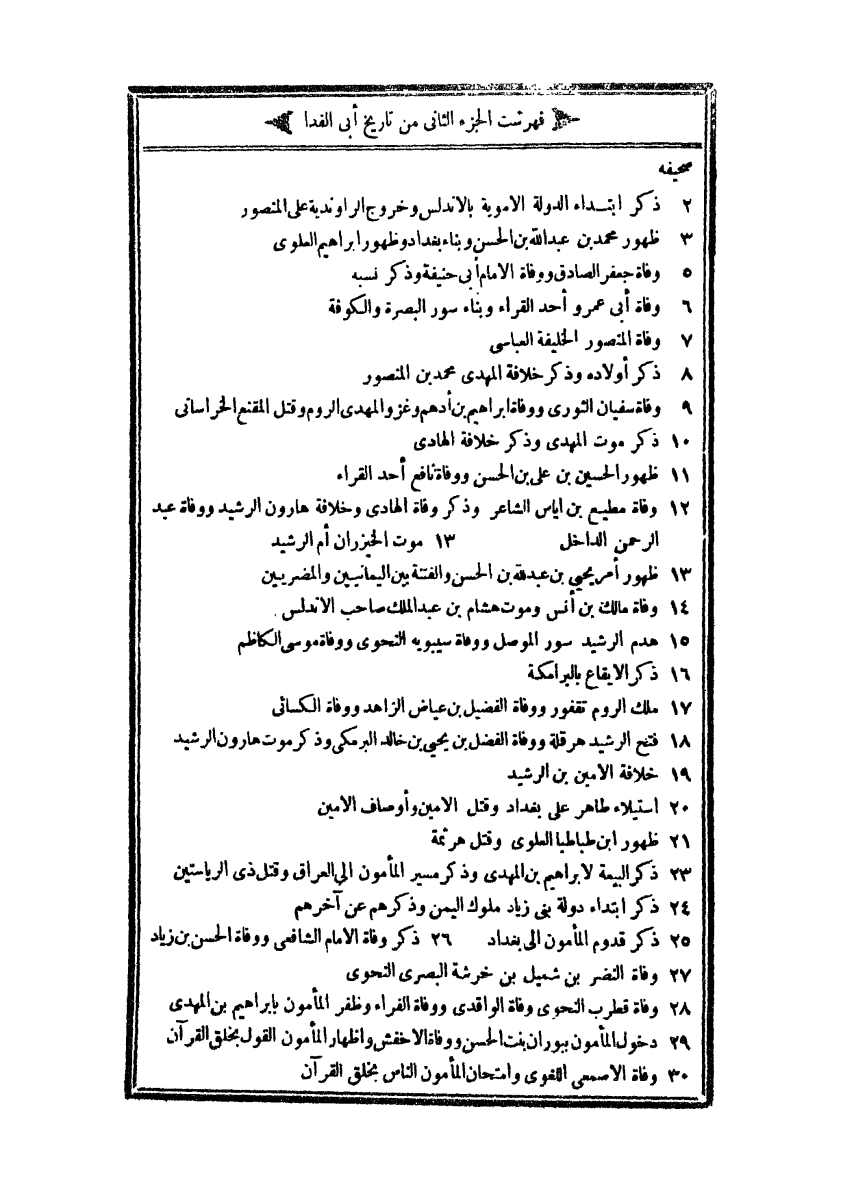 فهرست الجزء الثانى من تاريخ أبى الفدا
صحيفه
٢ ذكر ابتداء الدولة الاموية بالاندلس وخروج الراوندية على المنصور
٣ ظهور محمد بن عبدالله بن الحسن وبناء بغداد وظهور ابراهيم العلوى
٥ وفاة جعفر الصادق ووفاة الامام أبى حنيفة وذكر نسبه
٦ وفاة أبى عمرو أحد القراء وبناء سور البصرة والكوفة
٧ وفاة المنصور الخليفة العباسى
٨ ذكر أولاده وذكر خلافة المهدى محمد بن المنصور
٩ وفاة سفيان الثورى ووفاة ابراهيم بن أدهم وغزو المهدى الروم وقتل المقنع الخراسانى
١٠ ذكر موت المهدى وذكر خلافة الهادى
١١ ظهور الحسين بن على بن الحسن ووفاة نافع أحد القراء
١٢ وفاة مطيع بن اياس الشاعر وذكر وفاة الهادى وخلافة هارون الرشيد ووفاة عبد
الرحمن الداخل ١٣ موت الخيزران أم الرشيد
١٣ ظهور أمر يحيي بن عبدالله بن الحسن والفتنة بين اليمانيين والمضريين
١٤ وفاة مالك بن أنس وموت هشام بن عبدالملك صاحب الاندلس
١٥ هدم الرشيد سور الموصل ووفاة سيبويه النحوى ووفاة موسى الكاظم
١٦ ذكر الايقاع بالبرامكة
١٧ ملك الروم تقفور ووفاة الفضيل بن عياض الزاهد ووفاة الكسائى
١٨ فتح الرشيد هرقلة ووفاة الفضل بن يحيي بن خالد البرمكى وذكر موت هارون الرشيد
١٩ خلافة الامين بن الرشيد
٢٠ استيلاء طاهر على بغداد وقتل الامين وأوصاف الامين
٢١ ظهور ابن طباطبا العلوى وقتل هرثمة
٢٣ ذكر البيعة لابراهيم بن المهدى وذكر مسير المأمون الى العراق وقتل ذى الرياستين
٢٤ ذكر ابتداء دولة بنى زياد ملوك اليمن وذكرهم عن آخرهم
٢٥ ذكر قدوم المأمون الى بغداد ٢٦ ذكر وفاة الامام الشافعى ووفاة الحسن بن زياد
٢٧ وفاة النضر بن شميل بن خرشة البصرى النحوى
٢٨ وفاة قطرب النحوى وفاة الواقدى ووفاة الفراء وظفر المأمون بابراهيم بن المهدى
٢٩ دخول المأمون ببوران بنت الحسن ووفاة الاخفش واظهار المأمون القول بخلق القرآن
٣٠ وفاة الاصمعى اللغوى وامتحان المأمون الناس بخلق القرآن